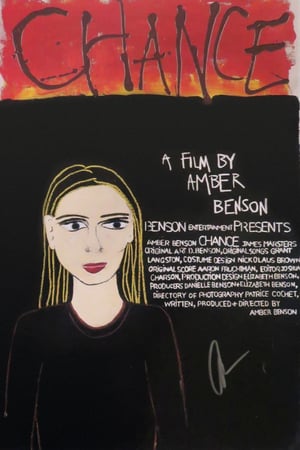 CHANCE
A FILM BY
AMBER
BENSON
BENSON ENTERTAINMENT PRESENTS
AMBER BENSON CHANCE JAMES MARSTERS
ORIGINAL ART D. BENSON, ORIGINAL SONGS GRANT
LANGSTON, COSTUME DESIGN NICKOLAUS BROWN
ORIGINAL SCORE AARON FRUCHMAN, EDITOR JOSHUA
CHARSON, PRODUCTION DESIGN ELIZABETH BENSON,
PRODUCERS DANIELLE BENSON + ELIZABETH BENSON,
DIRECTORY OF PHOTOGRAPHY PATRICE COCHET,
WRITTEN, PRODUCED + DIRECTED BY
AMBER BENSON